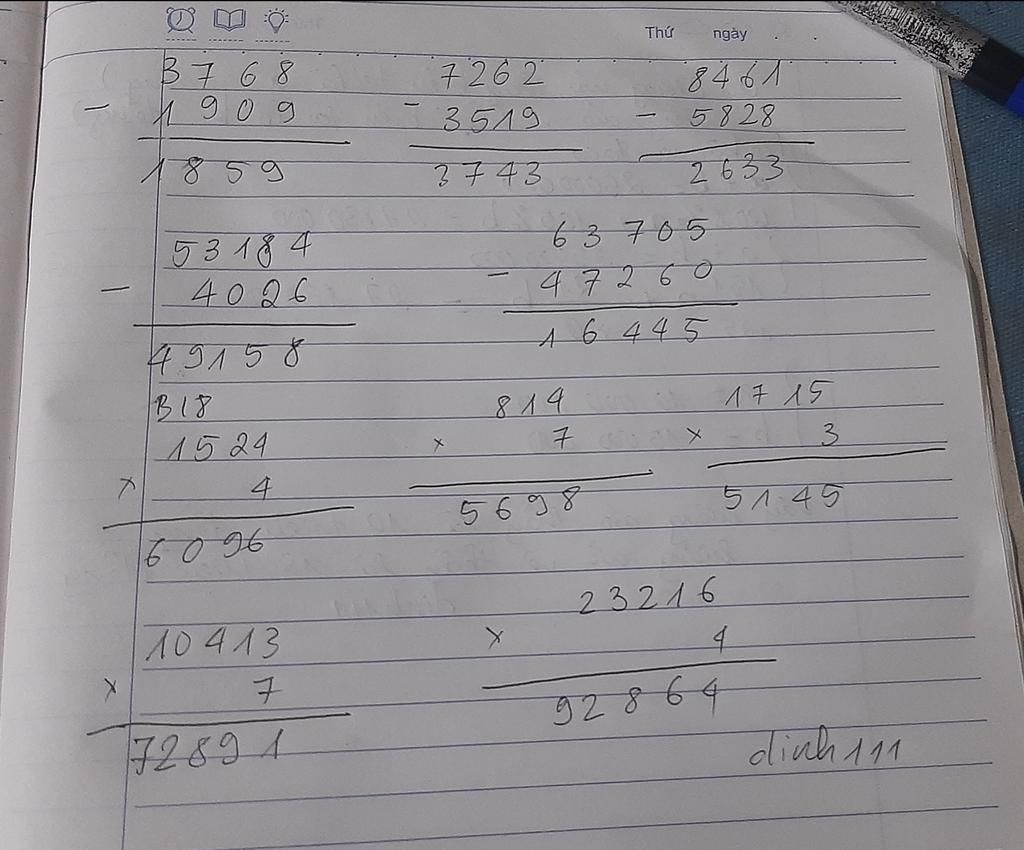 Thứ ngày . .
3768 7262 8461
- 1909 - 3519 - 5828
1859 3743 2633
53184 63705
- 4026 - 47260
49158 16445
B18 814 1715
1524 x 7 x 3
x 4 5698 5145
6096
23216
10413 x 4
x 7 92864
72891 dinh111